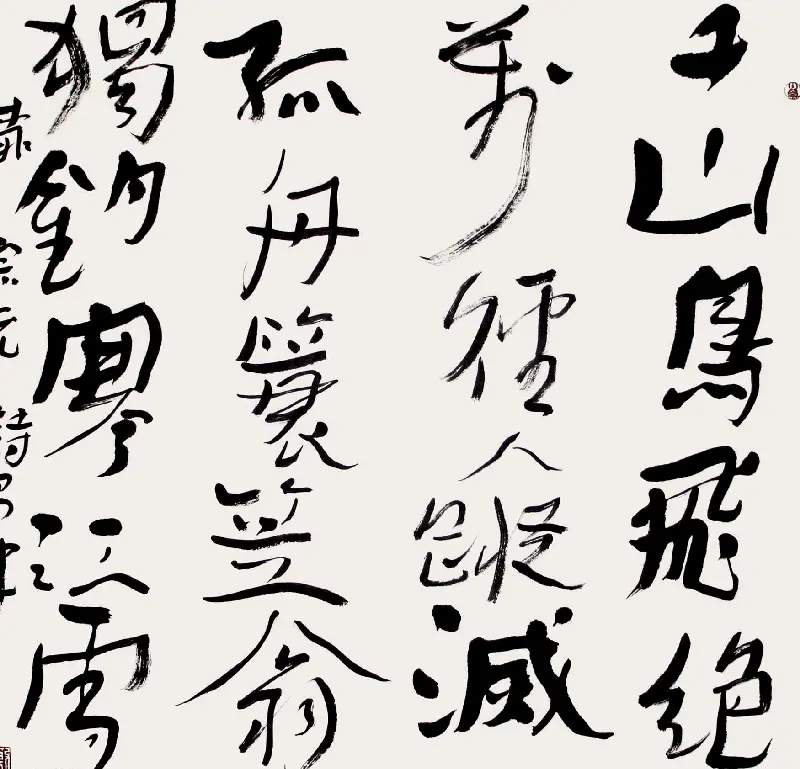 千山鳥飛絶
萬徑人蹤滅
孤舟簑笠翁
獨釣寒江雪
宗元詩